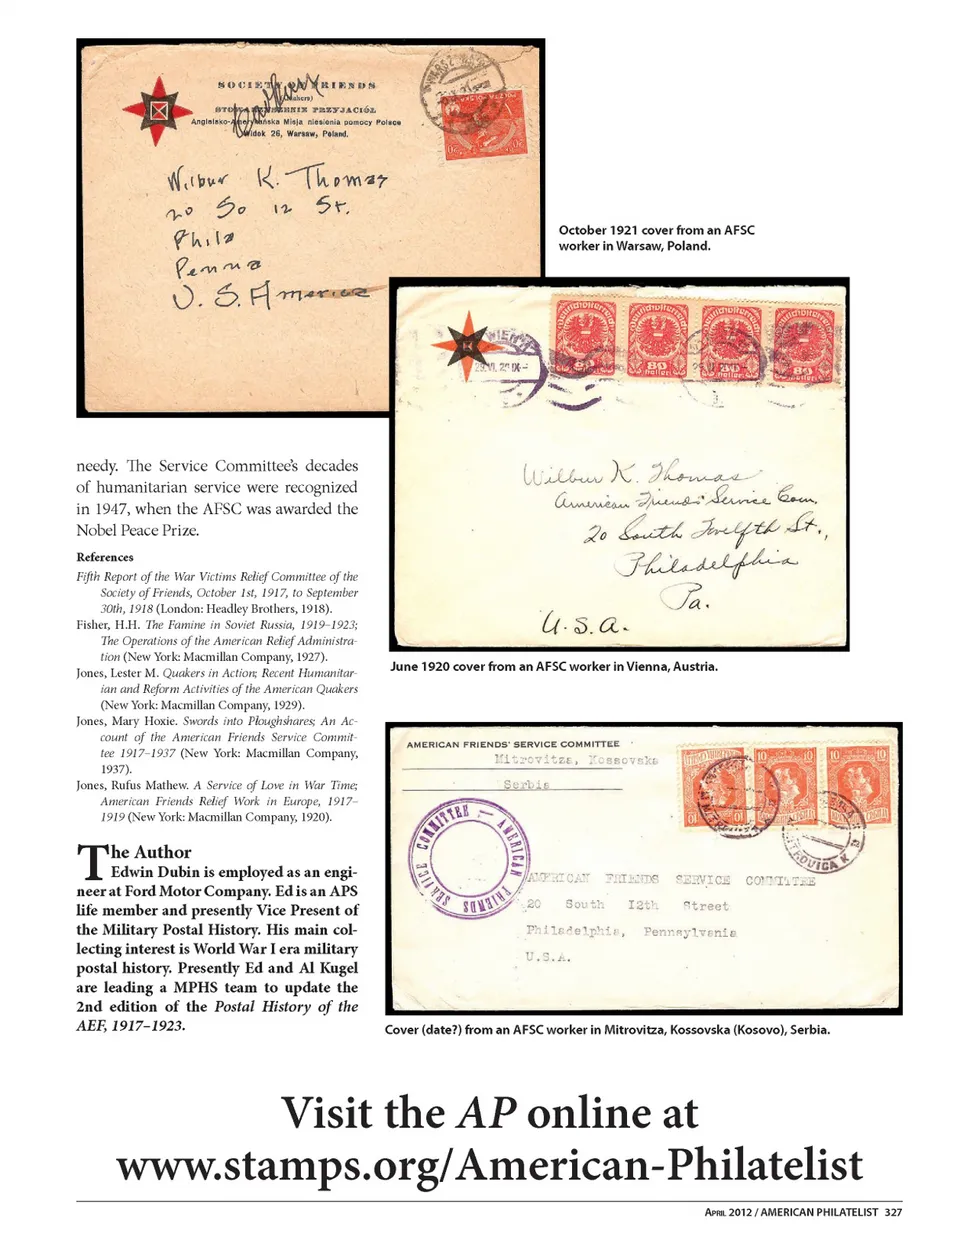 SOCIETY OF FRIENDS
(Quakers)
STOWARZYSZENIE PRZYJACIÓŁ
Angielsko-Amerykańska Misja niesienia pomocy Polsce
Widok 26, Warsaw, Poland.
Wilbur K. Thomas
20 So 12 St.
Phila
Penna
U.S. America
October 1921 cover from an AFSC
worker in Warsaw, Poland.
WIEN
Deutschösterreich
80 80 80 80
heller
Wilbur K. Thomas
American Friends' Service Com.
20 South Twelfth St.,
Philadelphia
Pa.
U.S.A.
June 1920 cover from an AFSC worker in Vienna, Austria.
needy. The Service Committee's decades
of humanitarian service were recognized
in 1947, when the AFSC was awarded the
Nobel Peace Prize.
References
Fifth Report of the War Victims Relief Committee of the
Society of Friends, October 1st, 1917, to September
30th, 1918 (London: Headley Brothers, 1918).
Fisher, H.H. The Famine in Soviet Russia, 1919–1923;
The Operations of the American Relief Administra-
tion (New York: Macmillan Company, 1927).
Jones, Lester M. Quakers in Action; Recent Humanitar-
ian and Reform Activities of the American Quakers
(New York: Macmillan Company, 1929).
Jones, Mary Hoxie. Swords into Ploughshares; An Ac-
count of the American Friends Service Commit-
tee 1917–1937 (New York: Macmillan Company,
1937).
Jones, Rufus Mathew. A Service of Love in War Time;
American Friends Relief Work in Europe, 1917–
1919 (New York: Macmillan Company, 1920).
The Author
Edwin Dubin is employed as an engi-
neer at Ford Motor Company. Ed is an APS
life member and presently Vice Present of
the Military Postal History. His main col-
lecting interest is World War I era military
postal history. Presently Ed and Al Kugel
are leading a MPHS team to update the
2nd edition of the Postal History of the
AEF, 1917–1923.
AMERICAN FRIENDS' SERVICE COMMITTEE
Mitrovitza, Kossovska
Serbia
AMERICAN FRIENDS SERVICE COMMITTEE
10 10 10 10
AMERICAN FRIENDS SERVICE COMMITTEE
20 South 12th Street
Philadelphia, Pennsylvania
U.S.A.
Cover (date?) from an AFSC worker in Mitrovitza, Kossovska (Kosovo), Serbia.
Visit the AP online at
www.stamps.org/American-Philatelist
APRIL 2012 / AMERICAN PHILATELIST 327